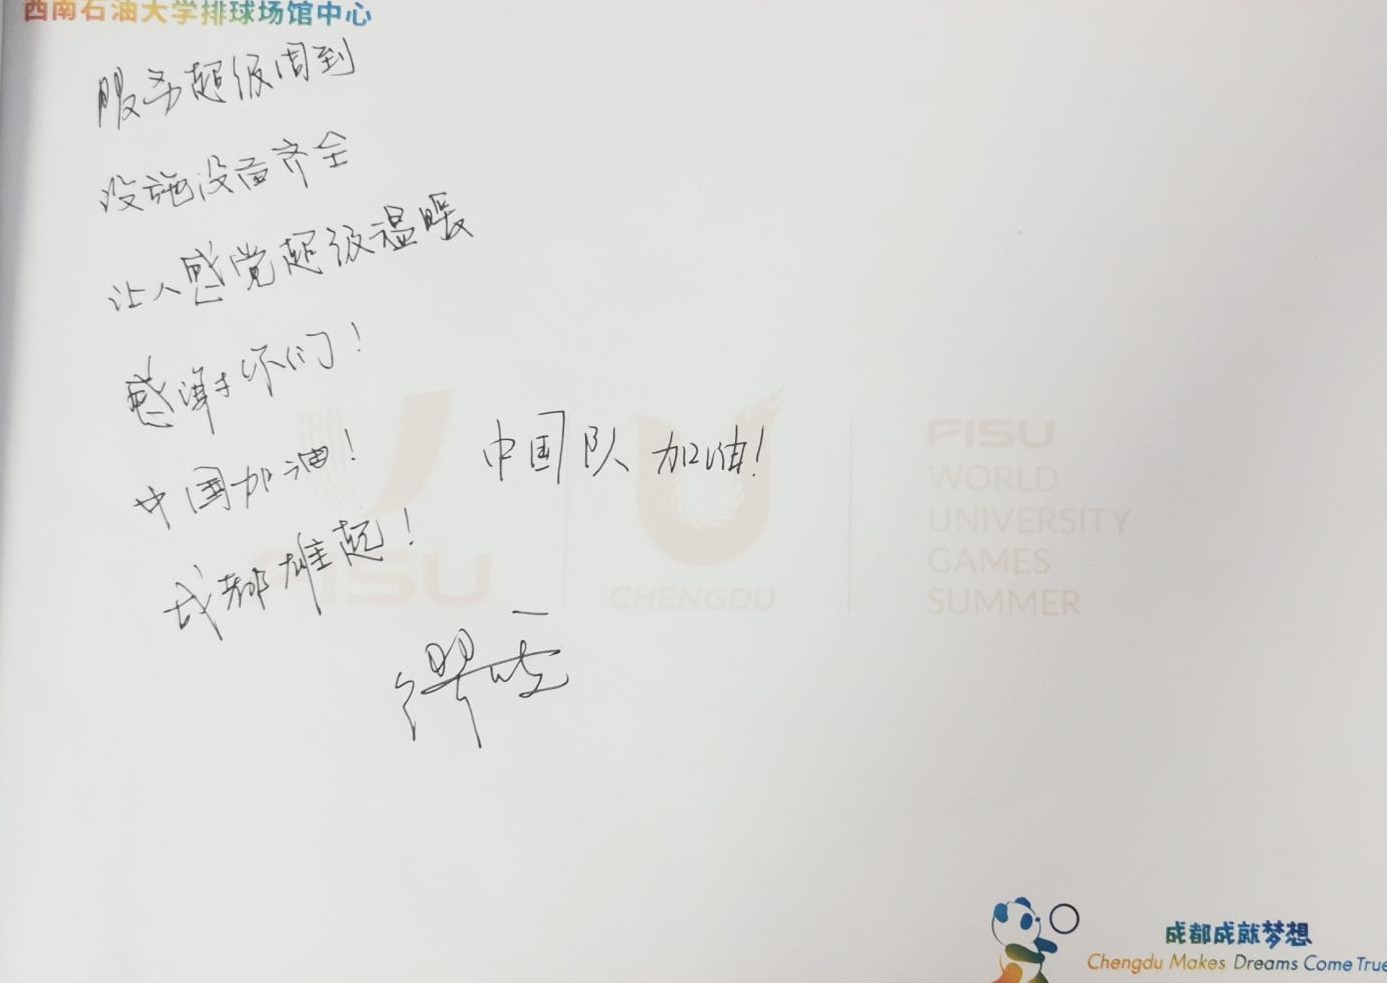 西南石油大学排球场馆中心
服务超级周到
设施设备齐全
让人感觉超级温暖
感谢你们！
中国加油！
中国队 加油！
成都雄起！
FISU
CHENGDU
FISU
WORLD
UNIVERSITY
GAMES
SUMMER
成都成就梦想
Chengdu Makes Dreams Come True